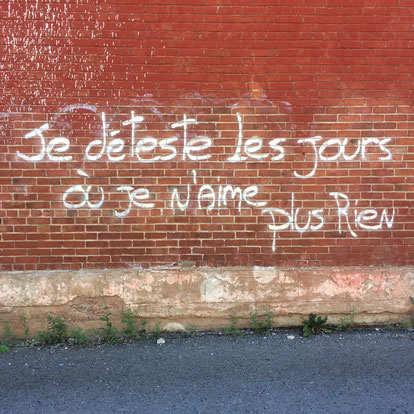 Je déteste les jours
où je n'Aime
plus Rien